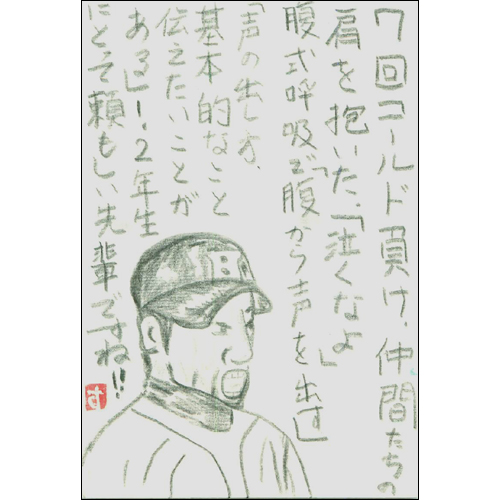 7回コールド負け.仲間たちの
肩を抱いた.「泣くなよ」
腹式呼吸で「腹から声を出す」
「声の出し方、
基本的なこと
伝えたいことが
ある」!.2年生
にとって頼もしい先輩ですね!!
B
す